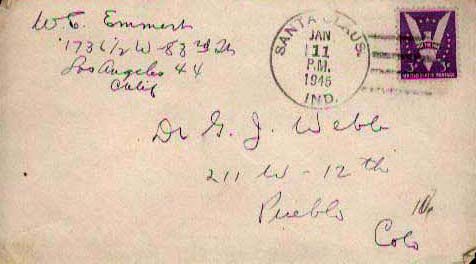 W E. Emmert
1736 1/2 W - 83rd St
Los Angeles 44
Calif
SANTA CLAUS.
JAN
11
P.M.
1945
IND.
UNITED STATES POSTAGE
Dr G. J. Webb
211 W - 12th
Pueblo
Colo